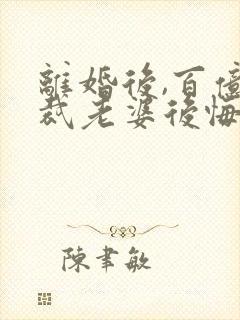 離婚後,百億
裁老婆後悔
陳聿敏